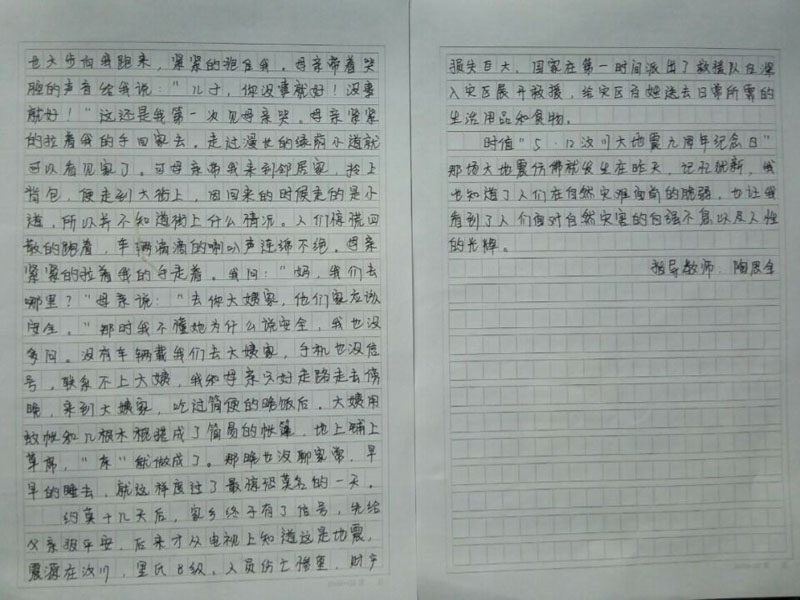 也大步向我跑来，紧紧的抱住我。母亲带着哭
腔的声音给我说：“儿子，你没事就好！没事
就好！”这还是我第一次见母亲哭。母亲紧紧
的拉着我的手回家去。走过漫长的绿荫小道就
可以看见家了。可母亲带我来到邻居家，拎上
背包，便走到大街上，因回来的时候走的是小
道，所以并不知道街上什么情况。人们慌慌
散的跑着，车辆滴滴的喇叭声连绵不绝。母亲
紧紧的拉着我的手走着。我问：“妈，我们去
哪里？”母亲说：“去你大姨家，他们家应该
安全。”那时我不懂她为什么说安全，我也没
多问。没有车辆载我们去大姨家，手机也没信
号，联系不上大姨，我和母亲只好走路走去傍
晚，来到大姨家，吃过简便的晚饭后。大姨用
蚊帐和几根木棍搭成了简易的帐篷，地上铺上
草席，“床”就做成了。那晚也没聊家常，早
早的睡去，就这样度过了最慌恐莫名的一天。
约莫十几天后，家乡终于有了信号，先给
父亲报平安，后来才从电视上知道这是地震，
震源在汶川，里氏8级。人员伤亡惨重，财产
损失巨大。国家在第一时间派出了救援队在深
入灾区展开救援，给灾区百姓送去日常所需的
生活用品和食物。
时值“5·12汶川大地震九周年纪念日”
那场大地震仿佛就发生在昨天，记忆犹新，我
也知道了人们在自然灾难面前的脆弱，也让我
看到了人们面对自然灾害的自强不息以及人性
的光辉。
指导教师：陶思全